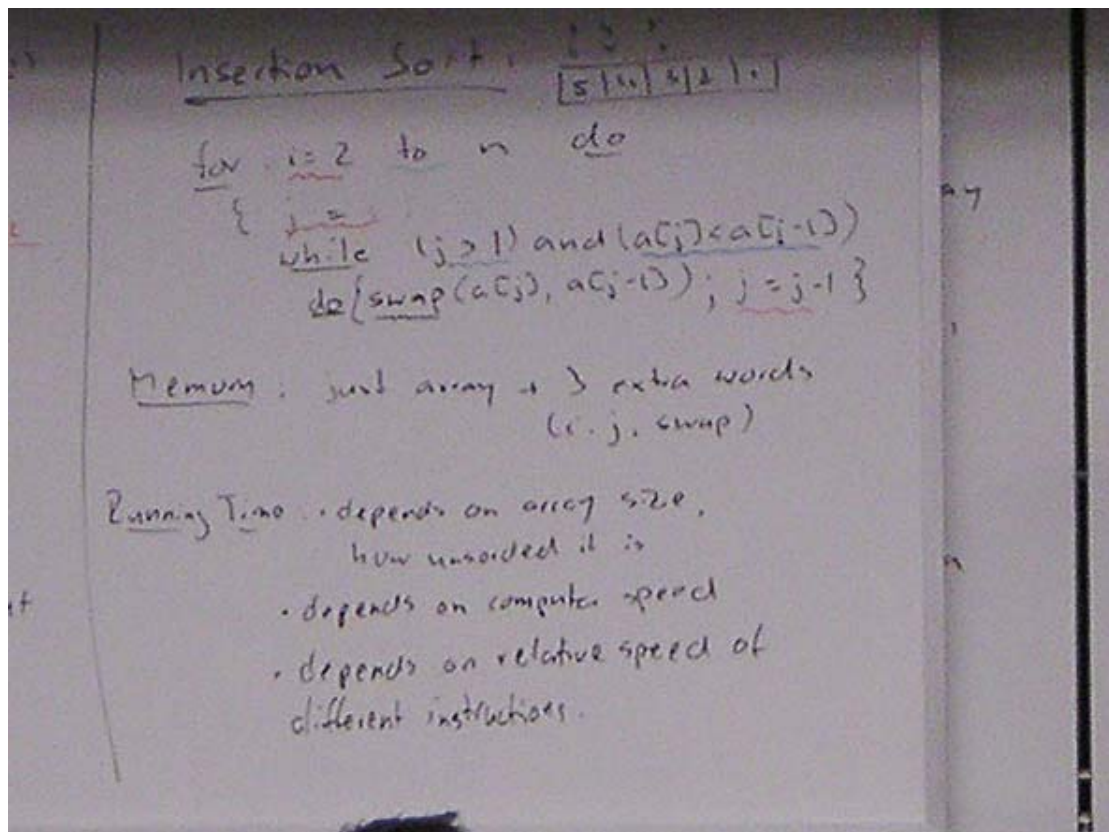 Insertion Sort:
for i=2 to n do
{ j =
while (j>1) and (a[j]<a[j-1])
do {swap(a[j], a[j-1]); j=j-1}
just array + 3 extra words
(i, j, swap)
Running Time . depends on array size,
how unsorted it is
. depends on computer speed
. depends on relative speed of
different instructions.
ay